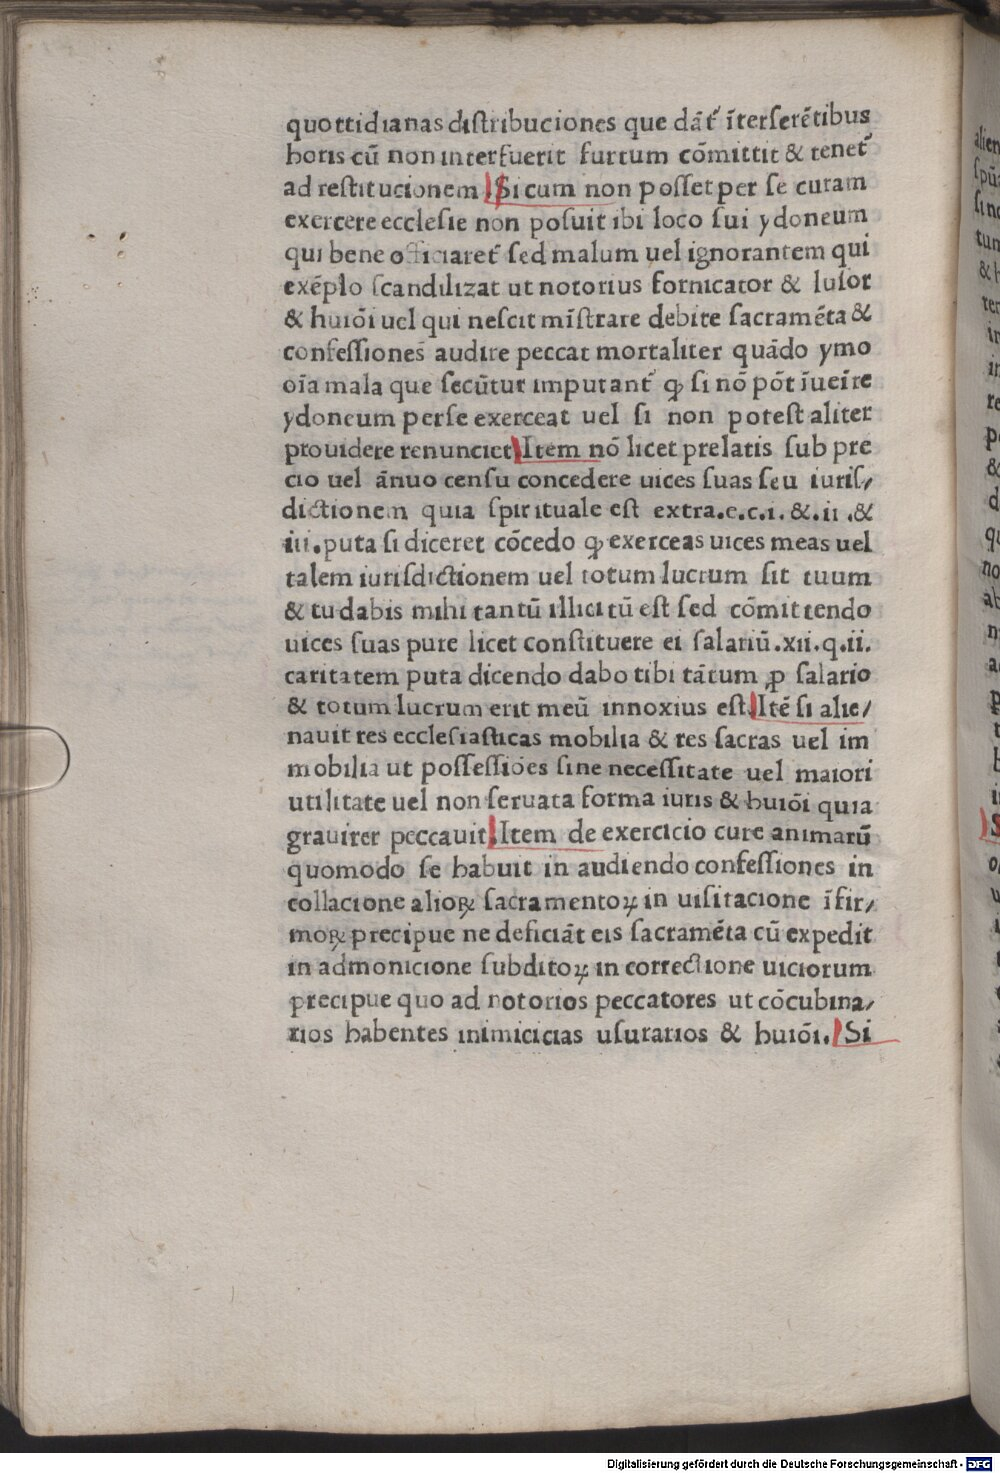 quottidianas distribuciones que dāt᷑ īterserētibus
horis cū non interfuerit furtum cōmittit & tenet᷑
ad restitucionem. Si cum non posset per se curam
exercere ecclesie non posuit ibi loco sui ydoneum
qui bene officiaret᷑ sed malum uel ignorantem qui
exēplo scandilizat ut notorius fornicator & lusor
& huiōi uel qui nescit mīstrare debite sacramēta &
confessiones audire peccat mortaliter quādo ymo
oīa mala que secūtur imputant᷑ ꝙ si nō pōt īueīre
ydoneum per se exerceat uel si non potest aliter
prouidere renunciet Item nō licet prelatis sub pre
cio uel ānuo censu concedere uices suas seu iuris/
dictionem quia spirituale est extra.e.c.i. &.ii .&
iii. puta si diceret cōcedo ꝙ exerceas uices meas uel
talem iurisdictionem uel totum lucrum sit tuum
& tu dabis mihi tantū illicitū est sed cōmittendo
uices suas pure licet constituere ei salariū.xii.q.ii.
caritatem puta dicendo dabo tibi tātum ꝓ salario
& totum lucrum erit meū innoxius est. Itē si alie/
nauit res ecclesiasticas mobilia & res sacras uel im
mobilia ut possessiōes sine necessitate uel maiori
utilitate uel non seruata forma iuris & huiōi quia
grauirer peccauit. Item de exercicio cure animarū
quomodo se habuit in audiendo confessiones in
collacione alioꝝ sacramentoꝝ in uisitacione īfir/
moꝝ precipue ne deficiāt eis sacramēta cū expedit
in admonicione subditoꝝ in correctione uiciorum
precipue quo ad notorios peccatores ut cōcubina/
rios habentes inimicicias usurarios & huiōi. Si
Digitalisierung gefördert durch die Deutsche Forschungsgemeinschaft - DFG